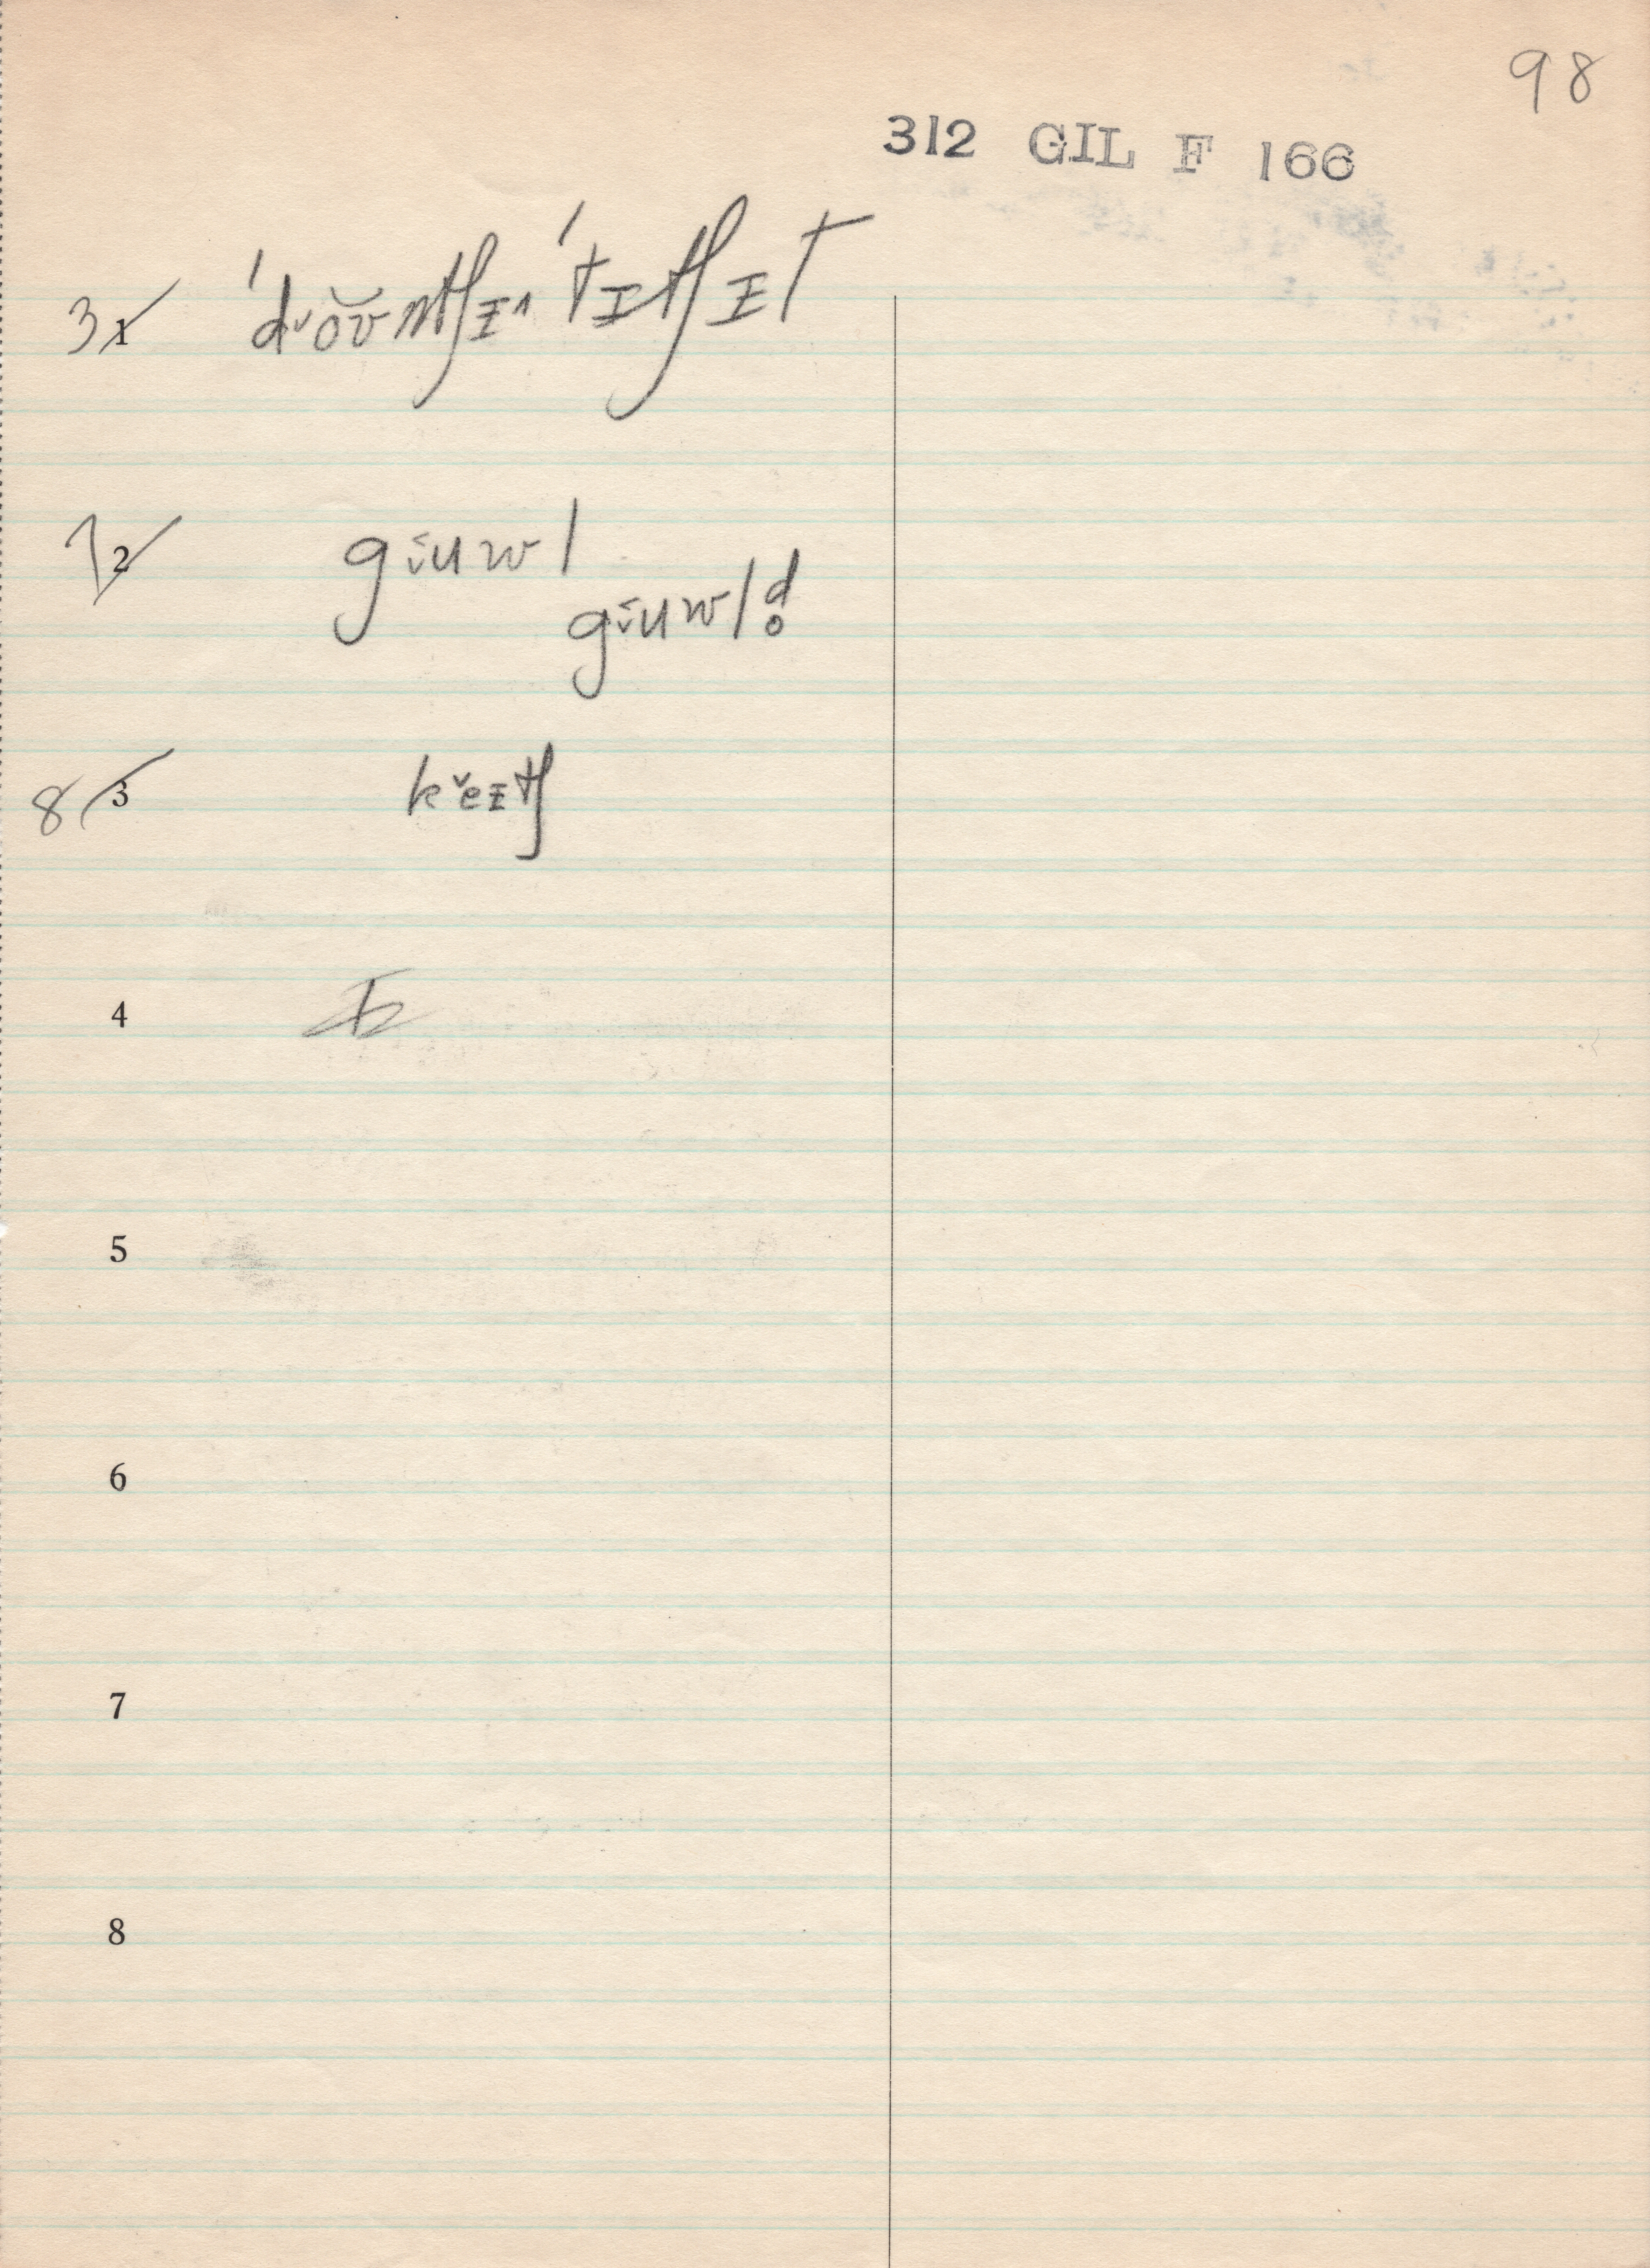 98
312 GIL F 166
3 1 ˈdᵛo̬ʊ̆ntʃɪ^ ˈtɪtʃɪt
7 2 gᵻ̆uwl
gᵻ̆uwld̥
8 3 kᵛeɪtʃ
4
5
6
7
8